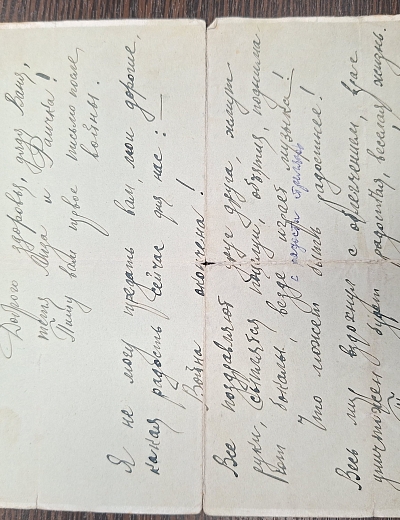 Доброго здоровья, дядя Ваня,
тётя Лида и Вамика!
Пишу вам первое письмо после
войны.
Я не могу предать вам, мои дорогие,
какая радость сейчас для нас! —
Война окончена!
Все поздравляют друг друга, жмут
руки, сыплются поцелуи, объятия, подняли
бокалы, везде играет музыка!
с радости
Что может быть радостнее!
Весь мир вздохнул с облегчением, враг
уничтожен, будет радостная, веселая жизнь.